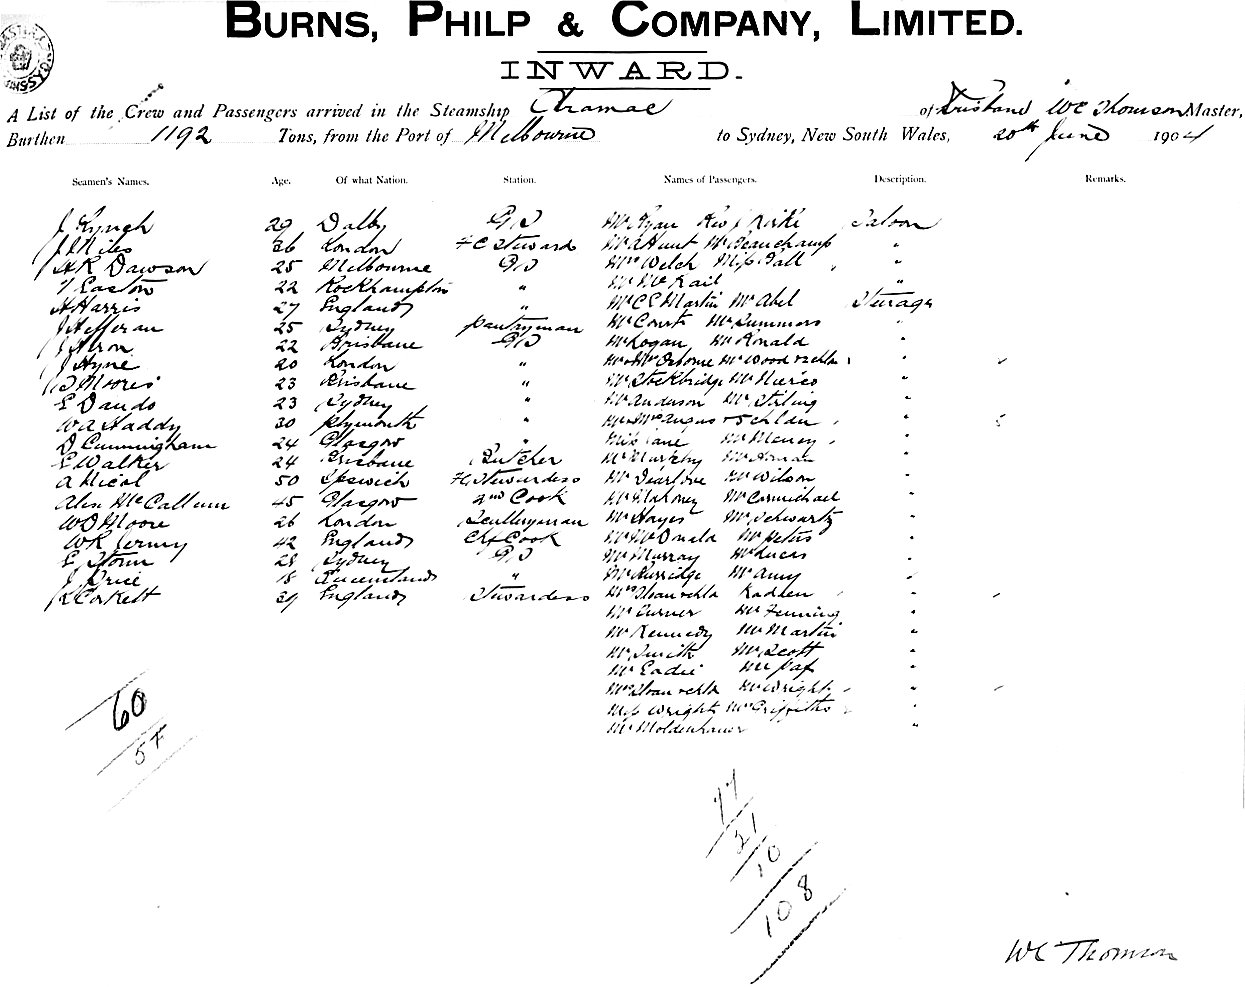 BURNS, PHILP & COMPANY, LIMITED.
INWARD.
A List of the Crew and Passengers arrived in the Steamship Aramac of Brisbane WC Thomson Master,
Burthen 1192 Tons, from the Port of Melbourne to Sydney, New South Wales, 20th June 1904
Seamen's Names. Age. Of what Nation. Station. Names of Passengers. Description. Remarks.
J Lynch 29 Dalby GS Mr Ryan Rev J Kirke Saloon
J Miles 26 London FC Steward Mr A Hunt Mr Beauchamp "
A R Dawson 25 Melbourne GS Mrs Welch Miss Gall "
T Easton 22 Rockhampton " Mr McKail "
A Harris 27 England " Mr CE Martin Mr Abel Steerage
J Heffernan 25 Sydney Pantryman Mr Court Mr Summers "
J Aron 22 Brisbane GS Mr Logan Mr Ronald "
J Hyne 20 London " Mr & Mrs Osborne Mr Wood & child "
D Moores 23 Brisbane " Mr Stockbridge Mr "
E Dauds 23 Sydney " Mr Anderson Mr Stirling "
W A Haddy 30 Plymouth " Mr & Mrs Angus & 5 children "
D Cunningham 24 Glasgow " Miss Lane Mr "
E Walker 24 Brisbane Butcher Mr Murphy Mr "
A Nicol 50 Ipswich FC Stewardess Mr Dearlove Mr Wilson "
Alex McCallum 45 Glasgow 2nd Cook Mr Mahoney Mr Carmichael "
W D Moore 26 London Sculleryman Mr Hayes Mr Schwartz "
W R Jermy 42 England Chf Cook Mr McDonald Mr Peters "
E Storm 28 Sydney GS Mr Murray Mr Lucas "
J Price 18 Queensland " Mr Burridge Mr Amy "
R Corkett 39 England Stewardess Mrs Sloan & child "
Mr Turner Mr Fenning "
Mr Kennedy Mr Martin "
Mr Smith Mr Scott "
Mr Eadie "
Mrs Sloan & child Mr Wright "
Miss Wright Mr Griffiths "
Mr Moldenhauer "
60
54
77
21
10
108
WC Thomson